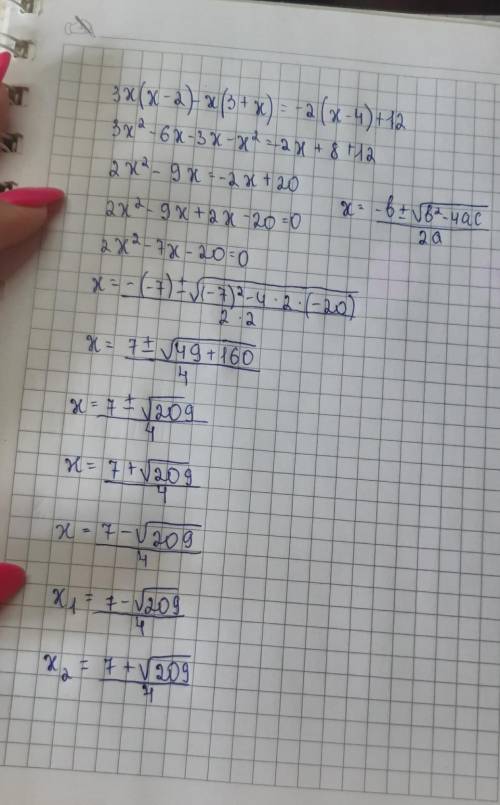 3x(x-2)-x(3+x)=-2(x-4)+12
3x²-6x-3x-x²=-2x+8+12
2x²-9x=-2x+20
2x²-9x+2x-20=0
x=(-b±√(b²-4ac))/(2a)
2x²-7x-20=0
x=(-(-7)±√((-7)²-4·2·(-20)))/(2·2)
x=(7±√(49+160))/4
x=(7±√209)/4
x=(7+√209)/4
x=(7-√209)/4
x₁=(7-√209)/4
x₂=(7+√209)/4